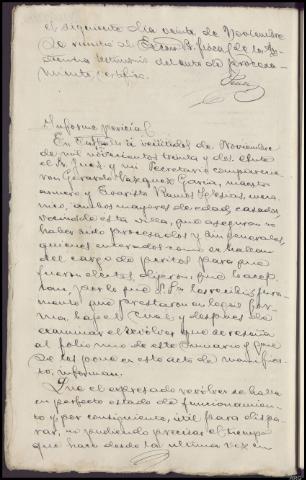 el siguiente día veinte de Noviembre
se remite al Excmo Sr. Fiscal de la Au-
diencia testimonio del auto de procesa-
miento, certifico.
Informe pericial
En a veintidos de Noviembre
de mil novecientos treinta y dos ante
el Sr. Juez y mi Secretario comparecie-
ron Gerardo Vazquez García, maestro
armero y Evaristo Ramos Iglesias, mecá-
nico, ambos mayores de edad, casados,
vecinos de esta villa, que aseguran no
haber sido procesados y sin generales,
quienes enterados como se hallan
del cargo de peritos para que
fueron electos, dijeron: que lo acep-
tan, por lo que S.Sª les recibió jura-
mento que prestaron en legal for-
ma, bajo el cual y despues de
examinar el revolver que se reseña
al folio uno de este sumario y que
se les pone en este acto de manifies-
to, informan:
Que el expresado revolver se halla
en perfecto estado de funcionamien-
to y por consiguiente, util para dispa-
rar, no pudiendo precisar el tiempo
que hace desde la ultima vez en